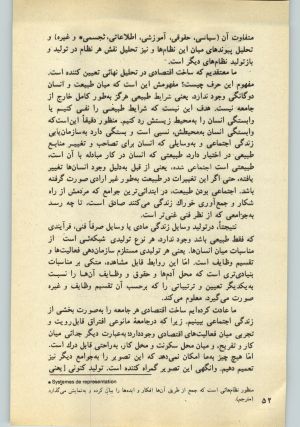 متفاوت آن (سیاسی، حقوقی، آموزشی، اطلاعاتی، تجسمی* و غیره) و
تحلیل پیوندهای میان این نظام‌ها و نیز تحلیل نقش هر نظام در تولید و
بازتولید نظام‌های دیگر است.
ما معتقدیم که ساخت اقتصادی در تحلیل نهائی تعیین کننده است.
مفهوم این حرف چیست؟ مفهومش این است که میان طبیعت و انسان
دوگانگی وجود ندارد. یعنی شرایط طبیعی هرگز به‌طور کامل خارج از
جامعه نیست. هدف این نیست که شرایط طبیعی را نفی کنیم یا
وابستگی انسان را به‌محیط زیستش رد کنیم. منظور دقیقاً این‌است‌که
وابستگی انسان به‌محیطش، نسبی است و بستگی دارد به‌سازمان‌یابی
زندگی اجتماعی و به‌وسایلی که انسان برای تصاحب و تغییر منابع
طبیعی در اختیار دارد. طبیعتی که انسان در کار مبادله با آن است،
طبیعتی است اجتماعی شده، یعنی از قبل به‌دلیل وجود انسان‌ها تغییر
یافته، حتی اگر این تغییرات در طبیعت به‌طور غیر ارادی صورت گرفته
باشد. اجتماعی بودن طبیعت، در ابتدائی‌ترین جوامع که مردمش از راه
شکار و جمع‌آوری خوراک زندگی می‌کنند صادق است، تا چه رسد
به‌جوامعی که از نظر فنی غنی‌تر است.
نتیجتاً، درتولید وسایل زندگی مادی یا وسایل صرفاً فنی، فرآیندی
که فقط طبیعی باشد وجود ندارد. هر نوع تولیدی شبکه‌ئی است از
مناسبات میان انسان‌ها. یعنی هر تولیدی مستلزم سازمان‌دهی فعالیت‌ها و
تقسیم وظایف است. اما این روابط قابل مشاهده، متکی بر مناسبات
بنیادی‌تری است که محل آدم‌ها و حقوق و وظایف آن‌ها را نسبت
به‌یکدیگر تعیین و ترتیباتی را که برحسب آن تقسیم وظایف و غیره
صورت می‌گیرد، معلوم می‌کند.
ما عادت کرده‌ایم ساخت اقتصادی هر جامعه را به‌صورت بخشی از
زندگی اجتماعی ببینیم. زیرا که درجامعهٔ مانوعی افتراق قابل‌رویت و
تجربی میان فعالیت‌های اقتصادی وجوددارد؛به‌عبارت دیگر جدائی میان
کار و تفریح، و میان محل سکونت و محل کار، به‌راحتی قابل درك است.
اما هیچ چیز به‌ما امکان نمی‌دهد که این تصویر را به‌جوامع دیگر نیز
تعمیم دهیم. وانگهی این تصویر گمراه کننده است. تولید کنونی [یعنی
* Systemes de representation
منظور نظام‌هائی است که جمع از طریق آن‌ها افکار و ایده‌ها را بیان کرده و به‌نمایش می‌گذارد
(مترجم).
۵۲